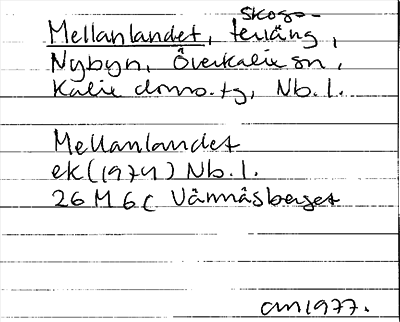 skogs-
Mellanlandet, terräng,
Nybyn, Överkalix sn,
Kalix doms.tg, Nb.l.
Mellanlandet
ek (1974) Nb.l.
26 M 6 c Vännäsberget
am 1977.